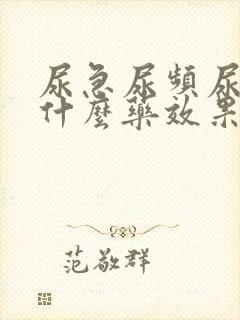 尿急尿頻尿
什麼藥效果
范敬群